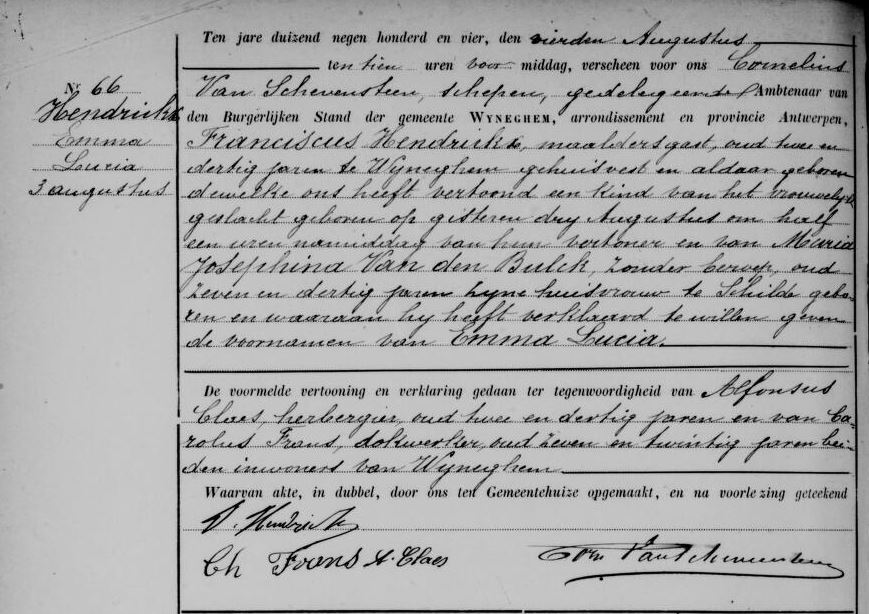 Nr 66
Hendrickx
Emma
Lucia
3 augustus
Ten jare duizend negen honderd en vier, den vierden Augustus
ten tien uren voor middag, verscheen voor ons Cornelius
Van Schevensteen, schepen, gedelegeerde Ambtenaar van
den Burgerlijken Stand der gemeente WYNEGHEM, arrondissement en provincie Antwerpen,
Franciscus Hendrickx, maaldersgast, oud twee en
dertig jaren te Wyneghem gehuisvest en aldaar geboren
dewelke ons heeft vertoond een kind van het vrouwelyk
geslacht geboren op gisteren dry Augustus om half
een uren namiddag van hem vertoner en van Maria
Josephina Van den Bulck, zonder beroep, oud
zeven en dertig jaren zyne huisvrouw te Schilde gebo-
ren en waaraan hy heeft verklaard te willen geven
de voornamen van Emma Lucia.
De voormelde vertooning en verklaring gedaan ter tegenwoordigheid van Alfonsus
Claes, herbergier, oud twee en dertig jaren en van Ca-
rolus Frans, dokwerker, oud zeven en twintig jaren bei-
den inwoners van Wyneghem
Waarvan akte, in dubbel, door ons ten Gemeentehuize opgemaakt, en na voorlezing geteekend
F. Hendrickx
Ch Frans A. Claes Corn Van Schevensteen